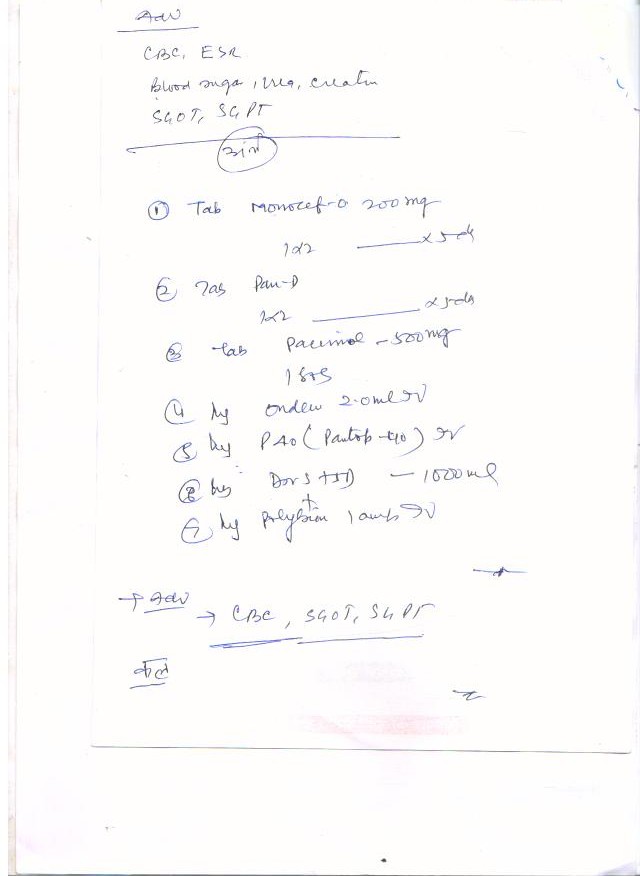 Adv
CBC, ESR
Blood sugar, Urea, Creatin
SGOT, SGPT
आज
① Tab Monocef-O 200mg
1x2 —— x 5-ds
② Tab Pan-D
1x2 —— x 5-ds
③ Tab Pacimol - 500mg
1 SOS
④ Inj Ondem 2.0ml IV
⑤ Inj P40 (Pantop-40) IV
— 1000ml
+
⑦ Inj Polybion 1 amp IV
→ Adv
→ CBC, SGOT, SGPT
कल